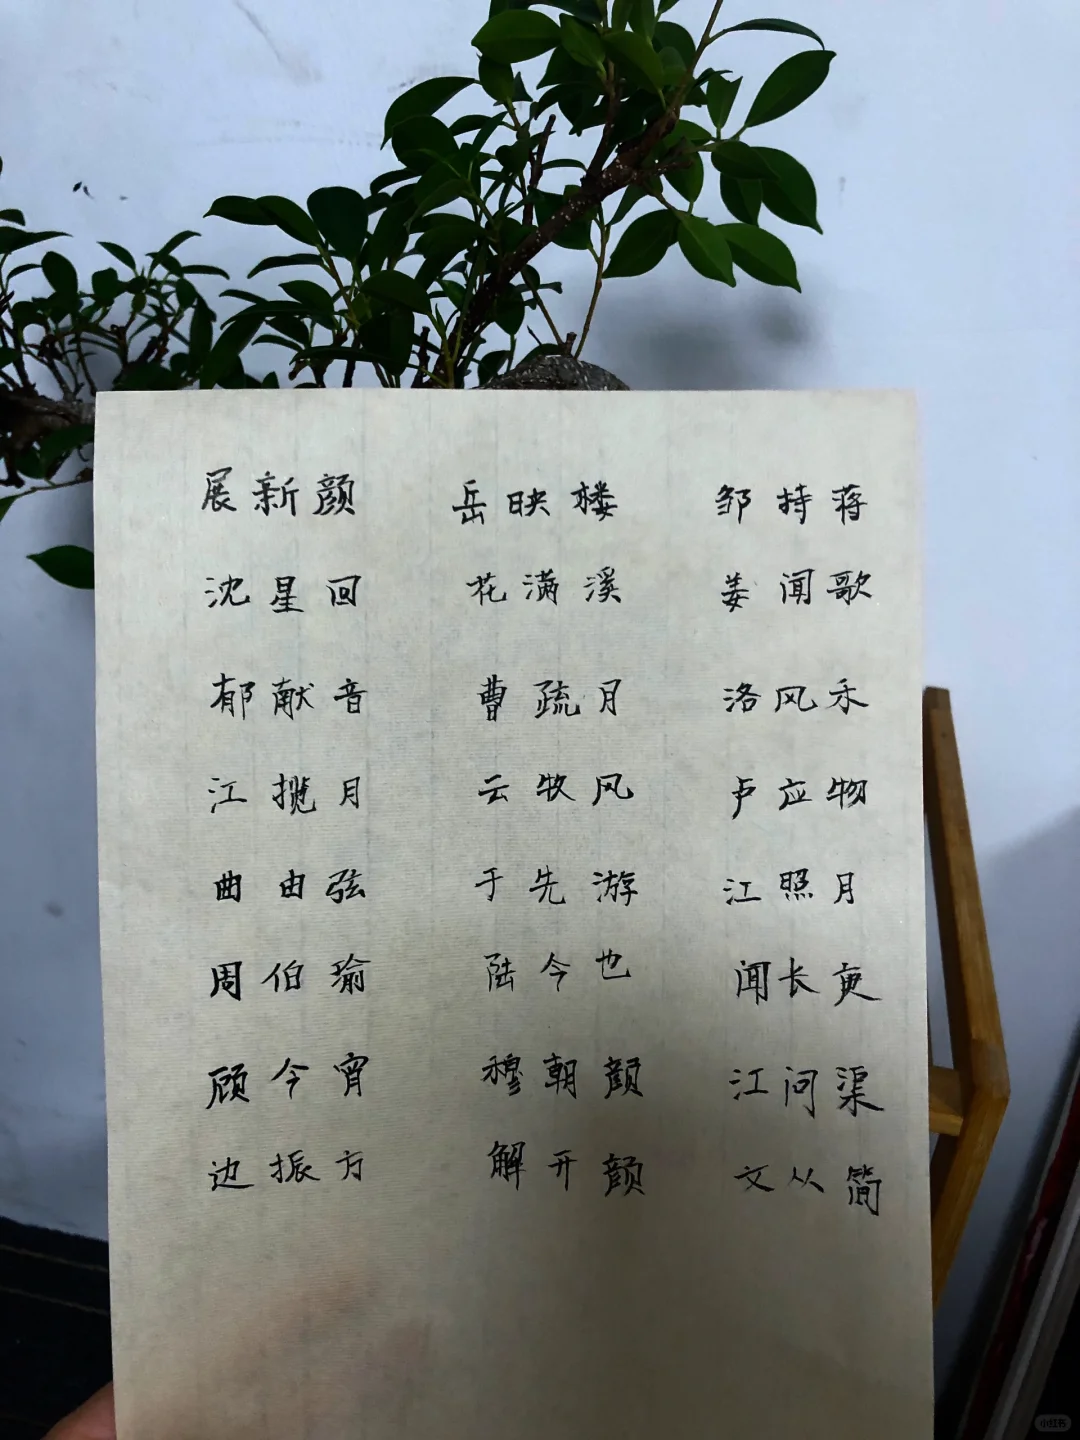 展新颜 岳映楼 邹持蒋
沈星回 花满溪 姜闻歌
郁献音 曹疏月 洛风禾
江揽月 云牧风 卢应物
曲由弦 于先游 江照月
周伯瑜 陆今也 闻长庚
顾今宵 穆朝颜 江问渠
边振方 解开颜 文从简
小红书